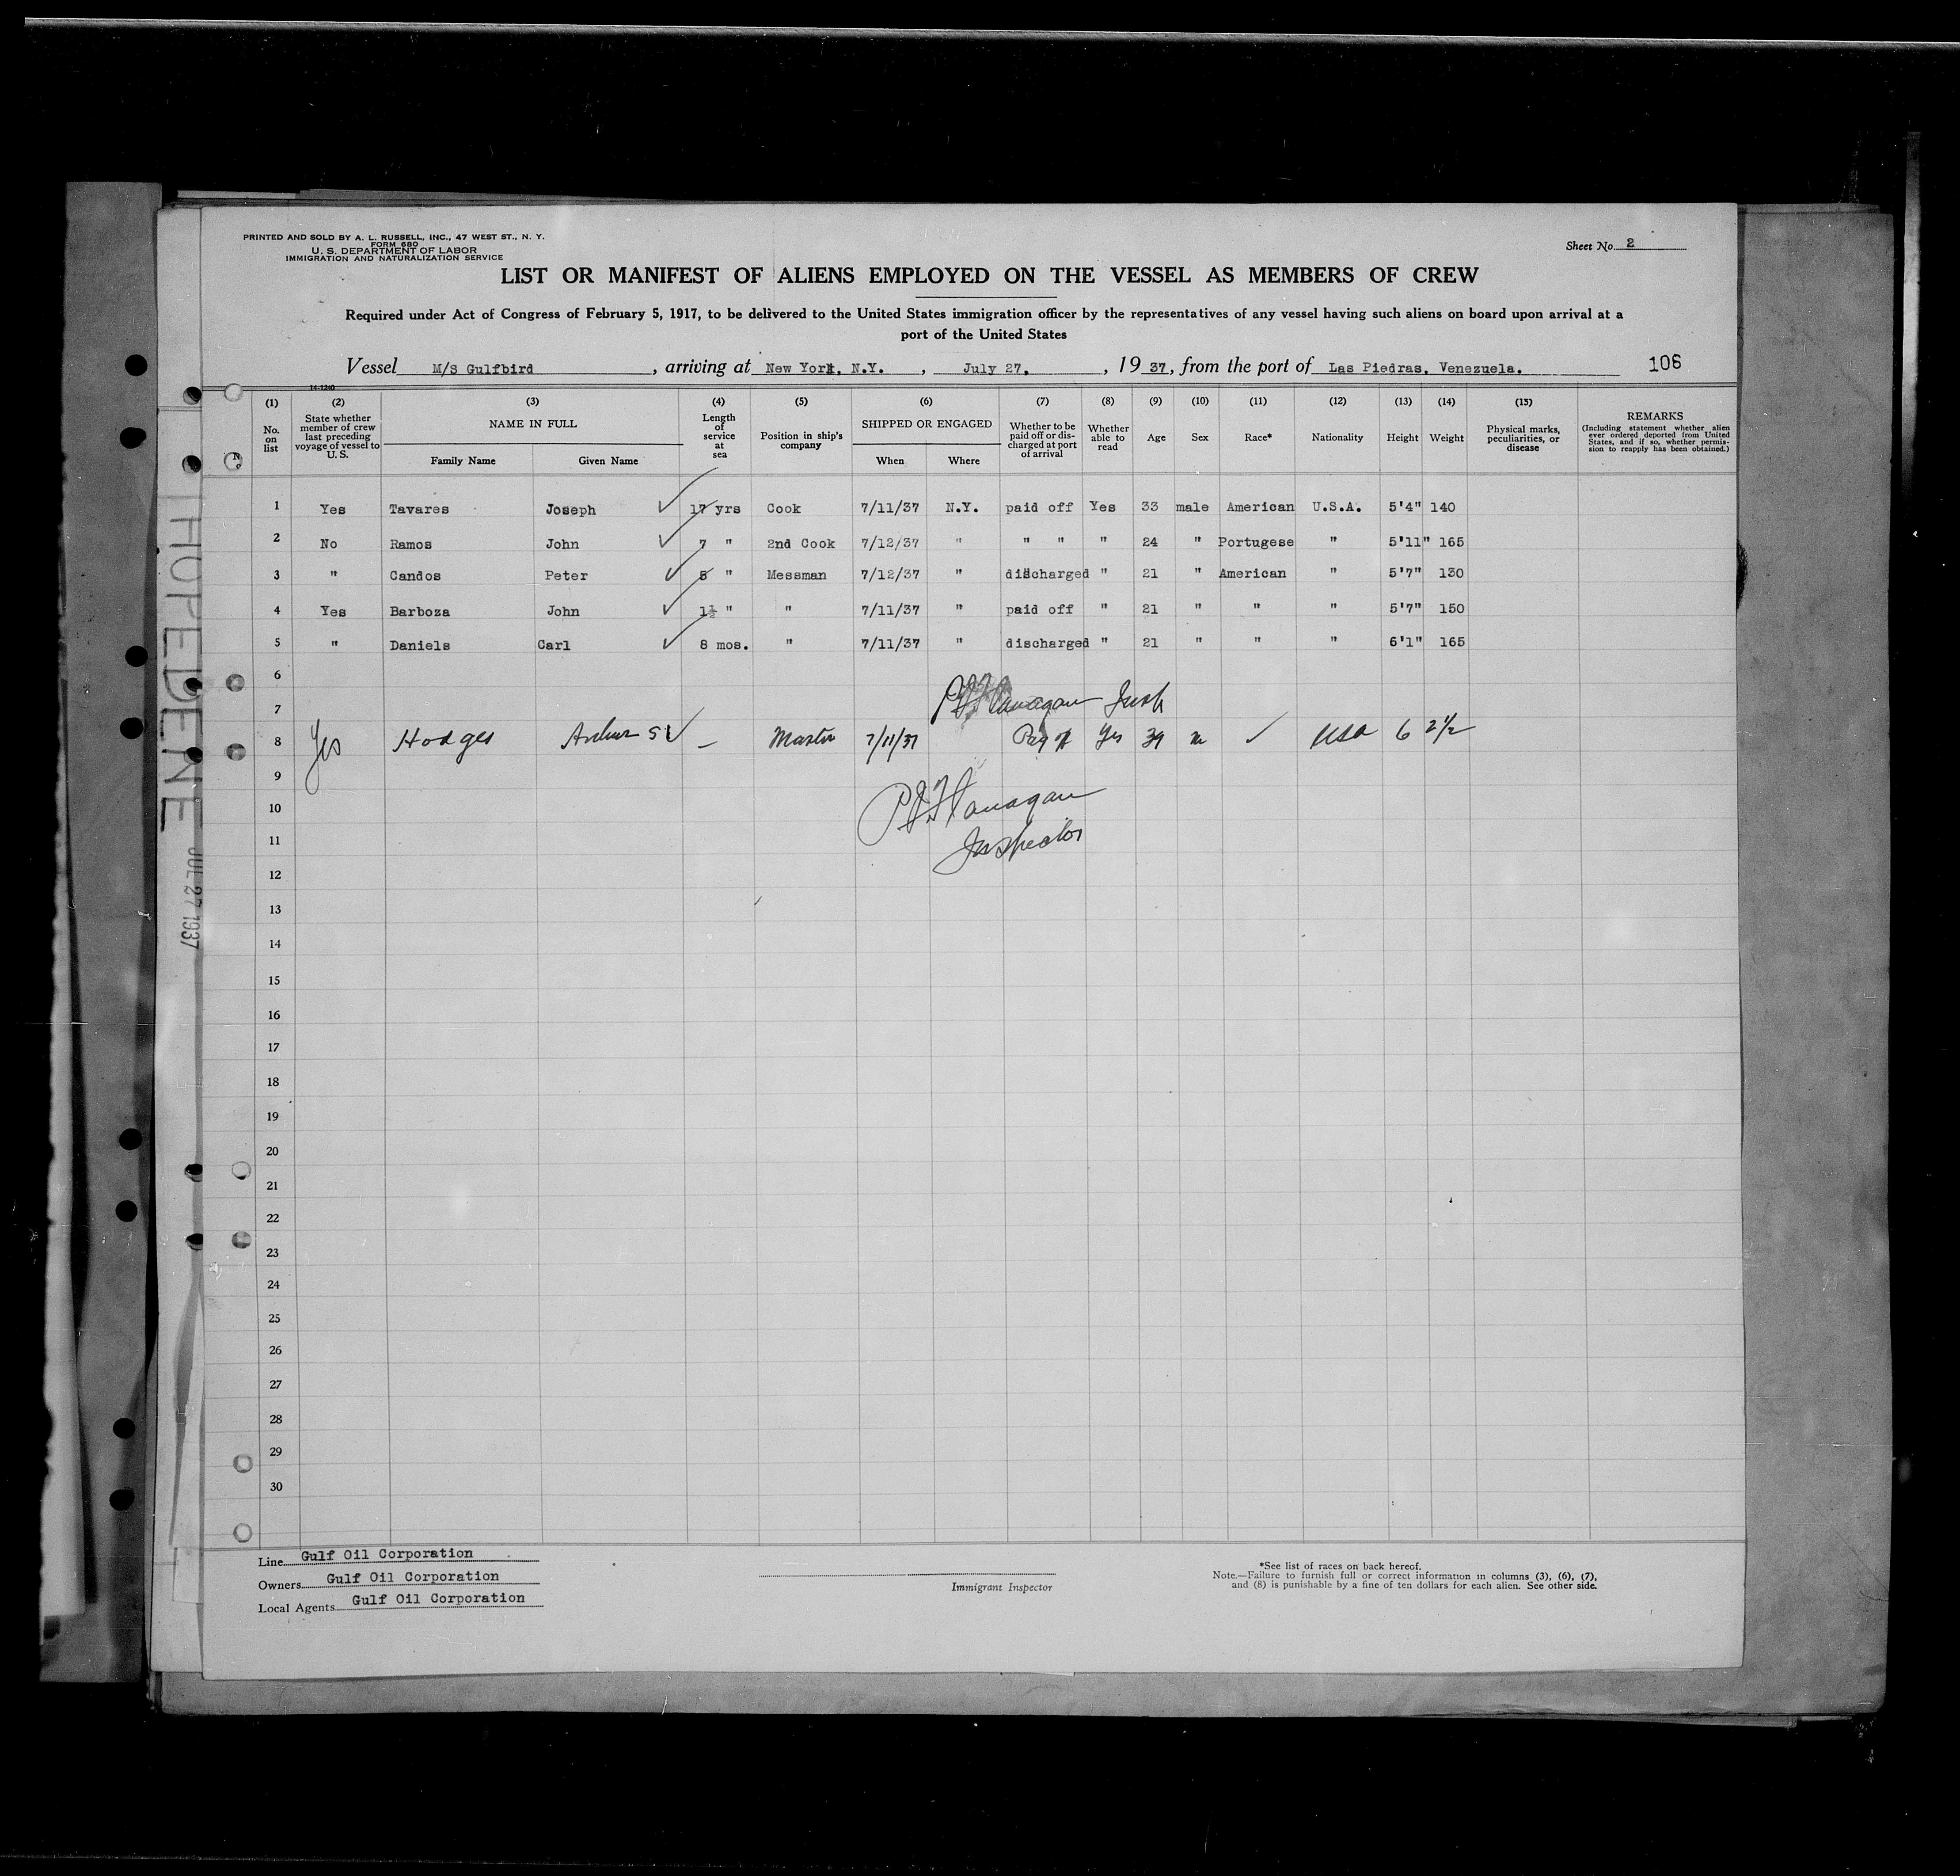 PRINTED AND SOLD BY A. L. RUSSELL, INC., 47 WEST ST., N. Y.
FORM 680
U. S. DEPARTMENT OF LABOR
IMMIGRATION AND NATURALIZATION SERVICE
Sheet No. 2
LIST OR MANIFEST OF ALIENS EMPLOYED ON THE VESSEL AS MEMBERS OF CREW
Required under Act of Congress of February 5, 1917, to be delivered to the United States immigration officer by the representatives of any vessel having such aliens on board upon arrival at a
port of the United States
Vessel M/S Gulfbird, arriving at New York, N.Y., July 27, 19 37, from the port of Las Piedras, Venezuela. 106
14-1240
(1) No. on list
(2) State whether member of crew last preceding voyage of vessel to U. S.
(3) NAME IN FULL
Family Name Given Name
(4) Length of service at sea
(5) Position in ship's company
(6) SHIPPED OR ENGAGED
When Where
(7) Whether to be paid off or discharged at port of arrival
(8) Whether able to read
(9) Age
(10) Sex
(11) Race*
(12) Nationality
(13) Height
(14) Weight
(15) Physical marks, peculiarities, or disease
REMARKS
(Including statement whether alien ever ordered deported from United States, and if so, whether permission to reapply has been obtained.)
1 Yes Tavares Joseph ✓ 17 yrs Cook 7/11/37 N.Y. paid off Yes 33 male American U.S.A. 5'4" 140
2 No Ramos John ✓ 7 " 2nd Cook 7/12/37 " " " " 24 " Portugese " 5'11" 165
3 " Candos Peter ✓ 5 " Messman 7/12/37 " discharged " 21 " American " 5'7" 130
4 Yes Barboza John ✓ 1½ " " 7/11/37 " paid off " 21 " " " 5'7" 150
5 " Daniels Carl ✓ 8 mos. " 7/11/37 " discharged " 21 " " " 6'1" 165
6
7 P J Flanagan Insp
8 Yes Hodges Arthur S ✓ – Master 7/11/37 Pay off Yes 39 m ✓ USA 6 2½
9
10 P J Flanagan
11 Inspector
12
13
14
15
16
17
18
19
20
21
22
23
24
25
26
27
28
29
30
Line Gulf Oil Corporation
Owners Gulf Oil Corporation
Local Agents Gulf Oil Corporation
Immigrant Inspector
*See list of races on back hereof.
Note.—Failure to furnish full or correct information in columns (3), (6), (7),
and (8) is punishable by a fine of ten dollars for each alien. See other side.
HOPEDENE JUL 27 1937